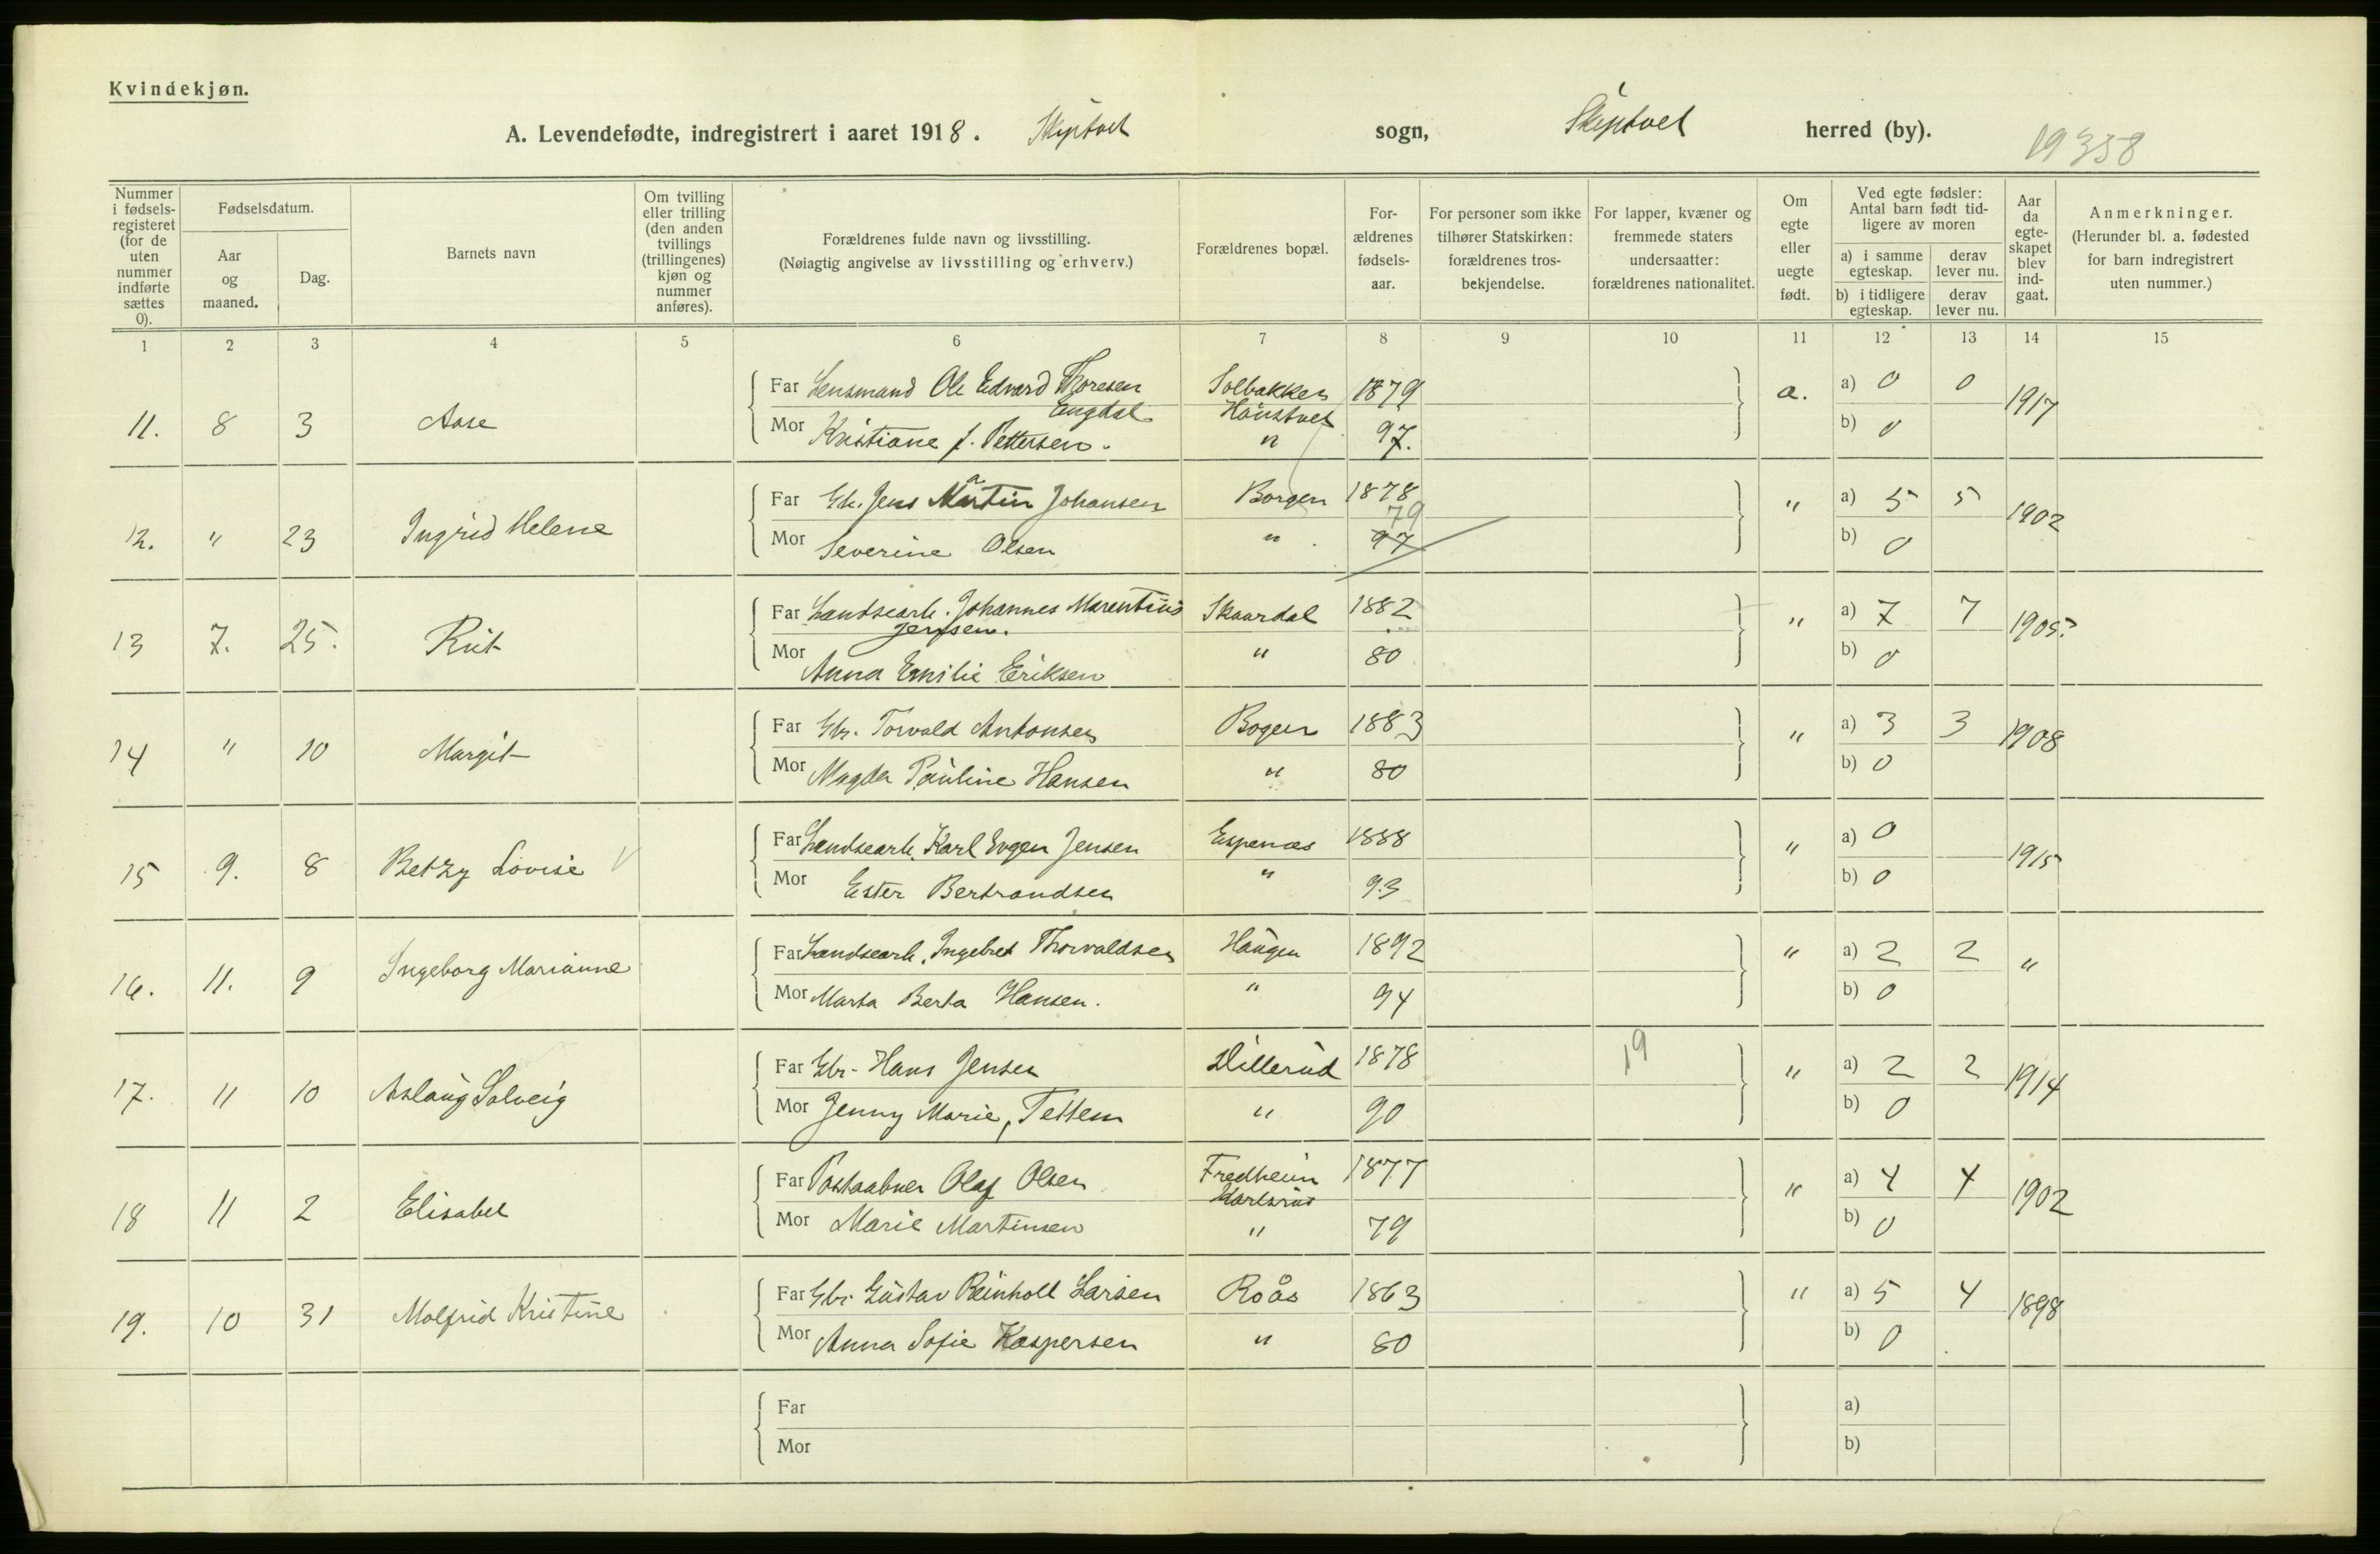 Kvindekjøn.
A. Levendefødte, indregistrert i aaret 1918. Skiptvet sogn, Skiptvet herred (by). 19358
Nummer i fødsels-registeret (for de uten nummer indførte sættes 0).
Fødselsdatum.
Aar og maaned.
Dag.
Barnets navn
Om tvilling eller trilling (den anden tvillings (trillingenes) kjøn og nummer anføres).
Forældrenes fulde navn og livsstilling.
(Nøiagtig angivelse av livsstilling og erhverv.)
Forældrenes bopæl.
For-ældrenes fødsels-aar.
For personer som ikke tilhører Statskirken: forældrenes tros-bekjendelse.
For lapper, kvæner og fremmede staters undersaatter: forældrenes nationalitet.
Om egte eller uegte født.
Ved egte fødsler: Antal barn født tid-ligere av moren
a) i samme egteskap.
derav lever nu.
b) i tidligere egteskap.
derav lever nu.
Aar da egte-skapet blev ind-gaat.
Anmerkninger.
(Herunder bl. a. fødested for barn indregistrert uten nummer.)
1 2 3 4 5 6 7 8 9 10 11 12 13 14 15
Far Lensmand Ole Edvard Thoresen Solbakken 1879 a. a) 0 0
11. 8 3 Aase Engdal Haustvet 1917
Mor Kristiane f. Pettersen. " 97. b) 0
Far Gbr. Jens Martin Johansen Borgen 1878 " a) 5 5
12. " 23 Ingrid Helene 79 1902
Mor Severine Olsen " 97 b) 0
Far Landsearb. Johannes Marentius Skaardal 1882 " a) 7 7
13 7. 25. Rut Jensen. 1905?
Mor Anna Emilie Eriksen " 80 b) 0
Far Gbr. Torvald Antonsen Bogen 1883 " a) 3 3
14 " 10 Margit 1908
Mor Magda Pauline Hansen " 80 b) 0
Far Landsearb. Karl Evgen Jensen Espenæs 1888 " a) 0
15 9. 8 Betzy Lovise 1915
Mor Ester Bertrandsen " 93 b) 0
Far Landsearb. Ingebret Thorvaldsen Haugen 1892 " a) 2 2
16. 11. 9 Ingeborg Marianne "
Mor Marta Berta Hansen. " 94 b) 0
Far Gbr. Hans Jensen Dillerud 1878 19 " a) 2 2
17. 11 10 Aslaug Solveig 1914
Mor Jenny Marie, Tettem " 90 b) 0
Far Postaabner Olaf Olsen Fredheim 1877 " a) 4 4
18 11 2 Elisabet Karlsrud 1902
Mor Marie Martinsen " 79 b) 0
Far Gbr. Gustav Reinholt Larsen Roås 1863 " a) 5 4
19. 10 31 Molfrid Kristine 1898
Mor Anna Sofie Kaspersen " 80 b) 0
Far a)
Mor b)